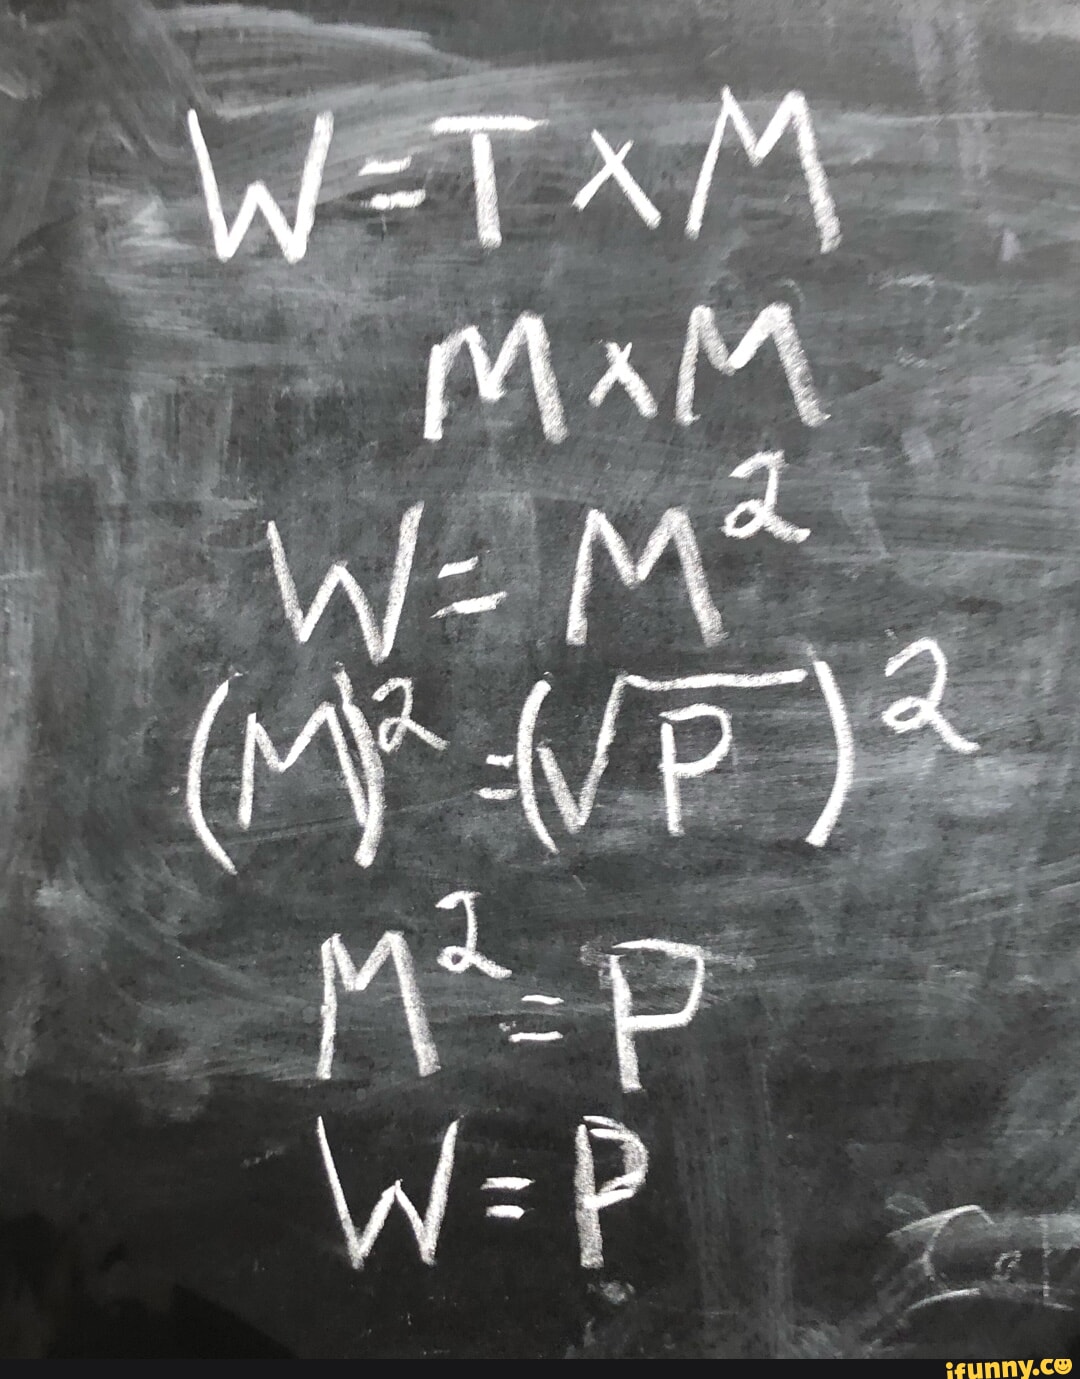 W=T×M
M×M
W=M²
(M)²=(√P)²
M²=P
W=P
ifunny.co